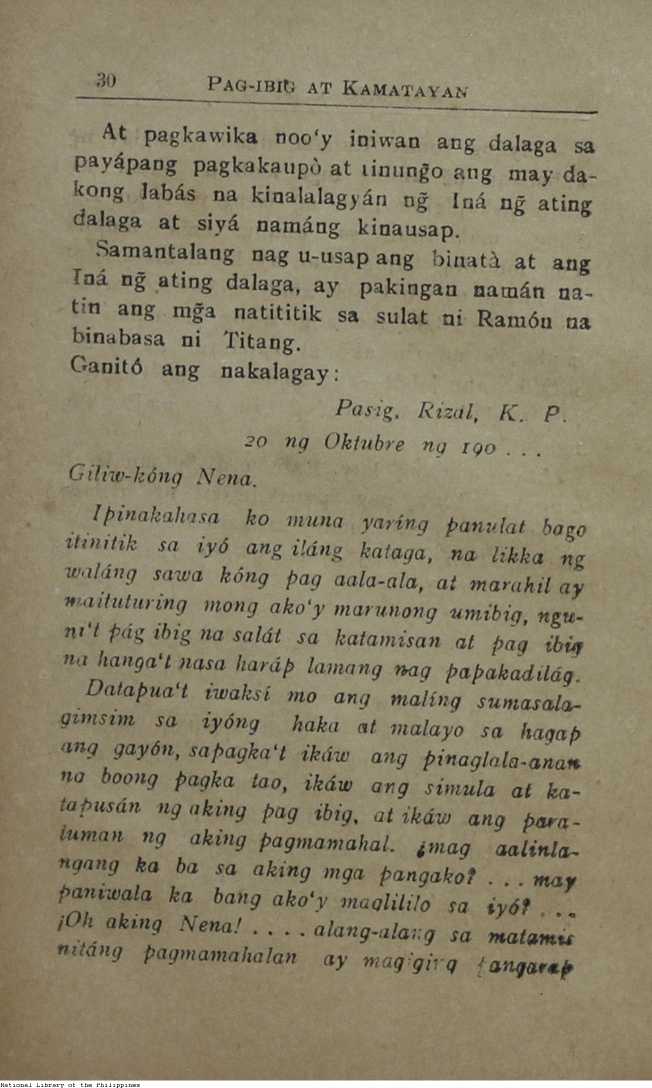 30 PAG-IBIG AT KAMATAYAN
At pagkawika noo'y iniwan ang dalaga sa
payápang pagkakaupò at tinung̃o ang may da-
kong labás na kinalalagyán ng̃ Iná ng̃ ating
dalaga at siyá namáng kinausap.
Samantalang nag u-usap ang binatà at ang
Iná ng̃ ating dalaga, ay pakingan namán na-
tin ang mg̃a natititik sa sulat ni Ramón na
binabasa ni Titang.
Ganitó ang nakalagay:
Pasig, Rizal, K. P.
20 ng Oktubre ng 190 . . .
Giliw-kóng Nena.
Ipinakahasa ko muna yaríng panulat bago
itinitik sa iyó ang iláng kataga, na likka ng
waláng sawa kóng pag aala-ala, at marahil ay
maituturing mong ako'y marunong umibig, ngu-
ni't pág ibig na salát sa katamisan at pag ibig
na hanga't nasa haráp lamang nag papakadilág.
Datapua't iwaksí mo ang malíng sumasala-
gimsim sa iyóng haka at malayo sa hagap
ang gayón, sapagka't ikáw ang pinaglala-anan
na boong pagka tao, ikáw ang simula at ka-
tapusán ng aking pag ibig, at ikáw ang para-
luman ng aking pagmamahal. ¿mag aalinla-
ngang ka ba sa aking mga pangako? . . . may
paniwala ka bang ako'y maglililo sa iyó? . . .
¡Oh aking Nena! . . . . alang-alang sa matamis
nitáng pagmamahalan ay magiging pangarap
National Library of the Philippines